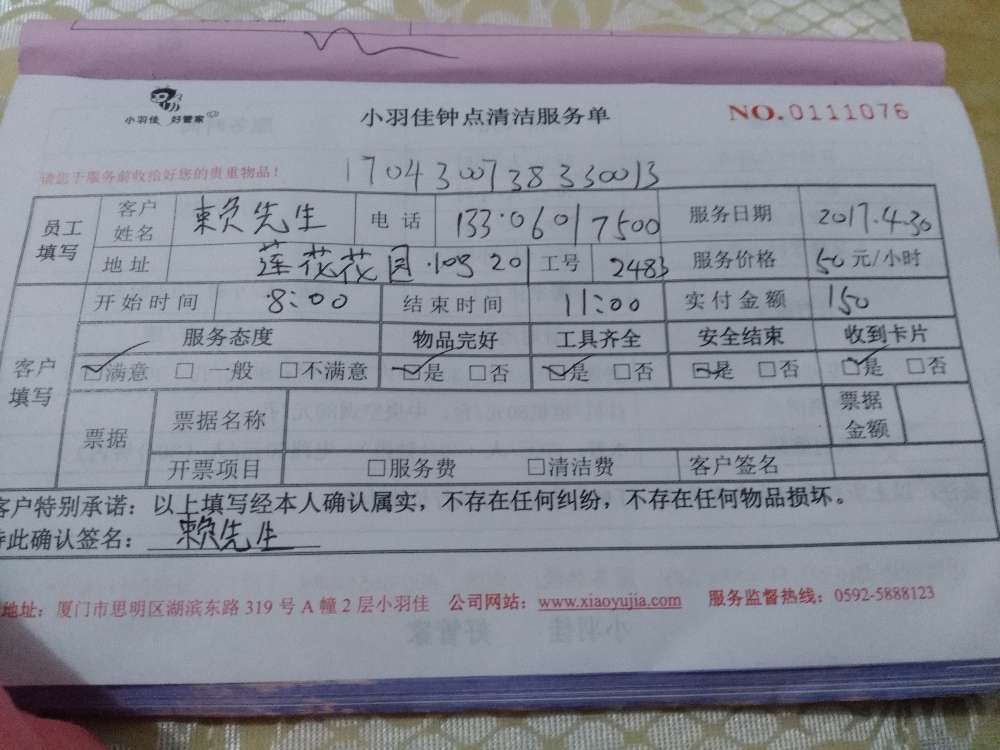 小羽佳 好管家
小羽佳钟点清洁服务单
NO.0111076
请您于服务前收拾好您的贵重物品！
170430073833 0013
员工填写 客户姓名 赖先生 电话 133.06017500 服务日期 2017.4.30
地址 莲花花园.109 201 工号 2483 服务价格 50元/小时
客户填写 开始时间 8:00 结束时间 11:00 实付金额 150
服务态度 物品完好 工具齐全 安全结束 收到卡片
☑满意 □一般 □不满意 ☑是 □否 ☑是 □否 ☑是 □否 ☑是 □否
票据 票据名称 票据金额
开票项目 □服务费 □清洁费 客户签名
客户特别承诺：以上填写经本人确认属实，不存在任何纠纷，不存在任何物品损坏。
特此确认签名：赖先生
地址：厦门市思明区湖滨东路 319 号 A 幢 2 层小羽佳 公司网站：www.xiaoyujia.com 服务监督热线：0592-5888123